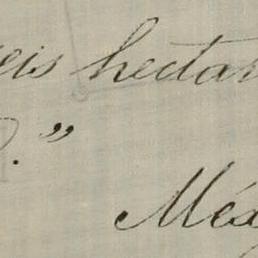 eis hectar
."
Méx